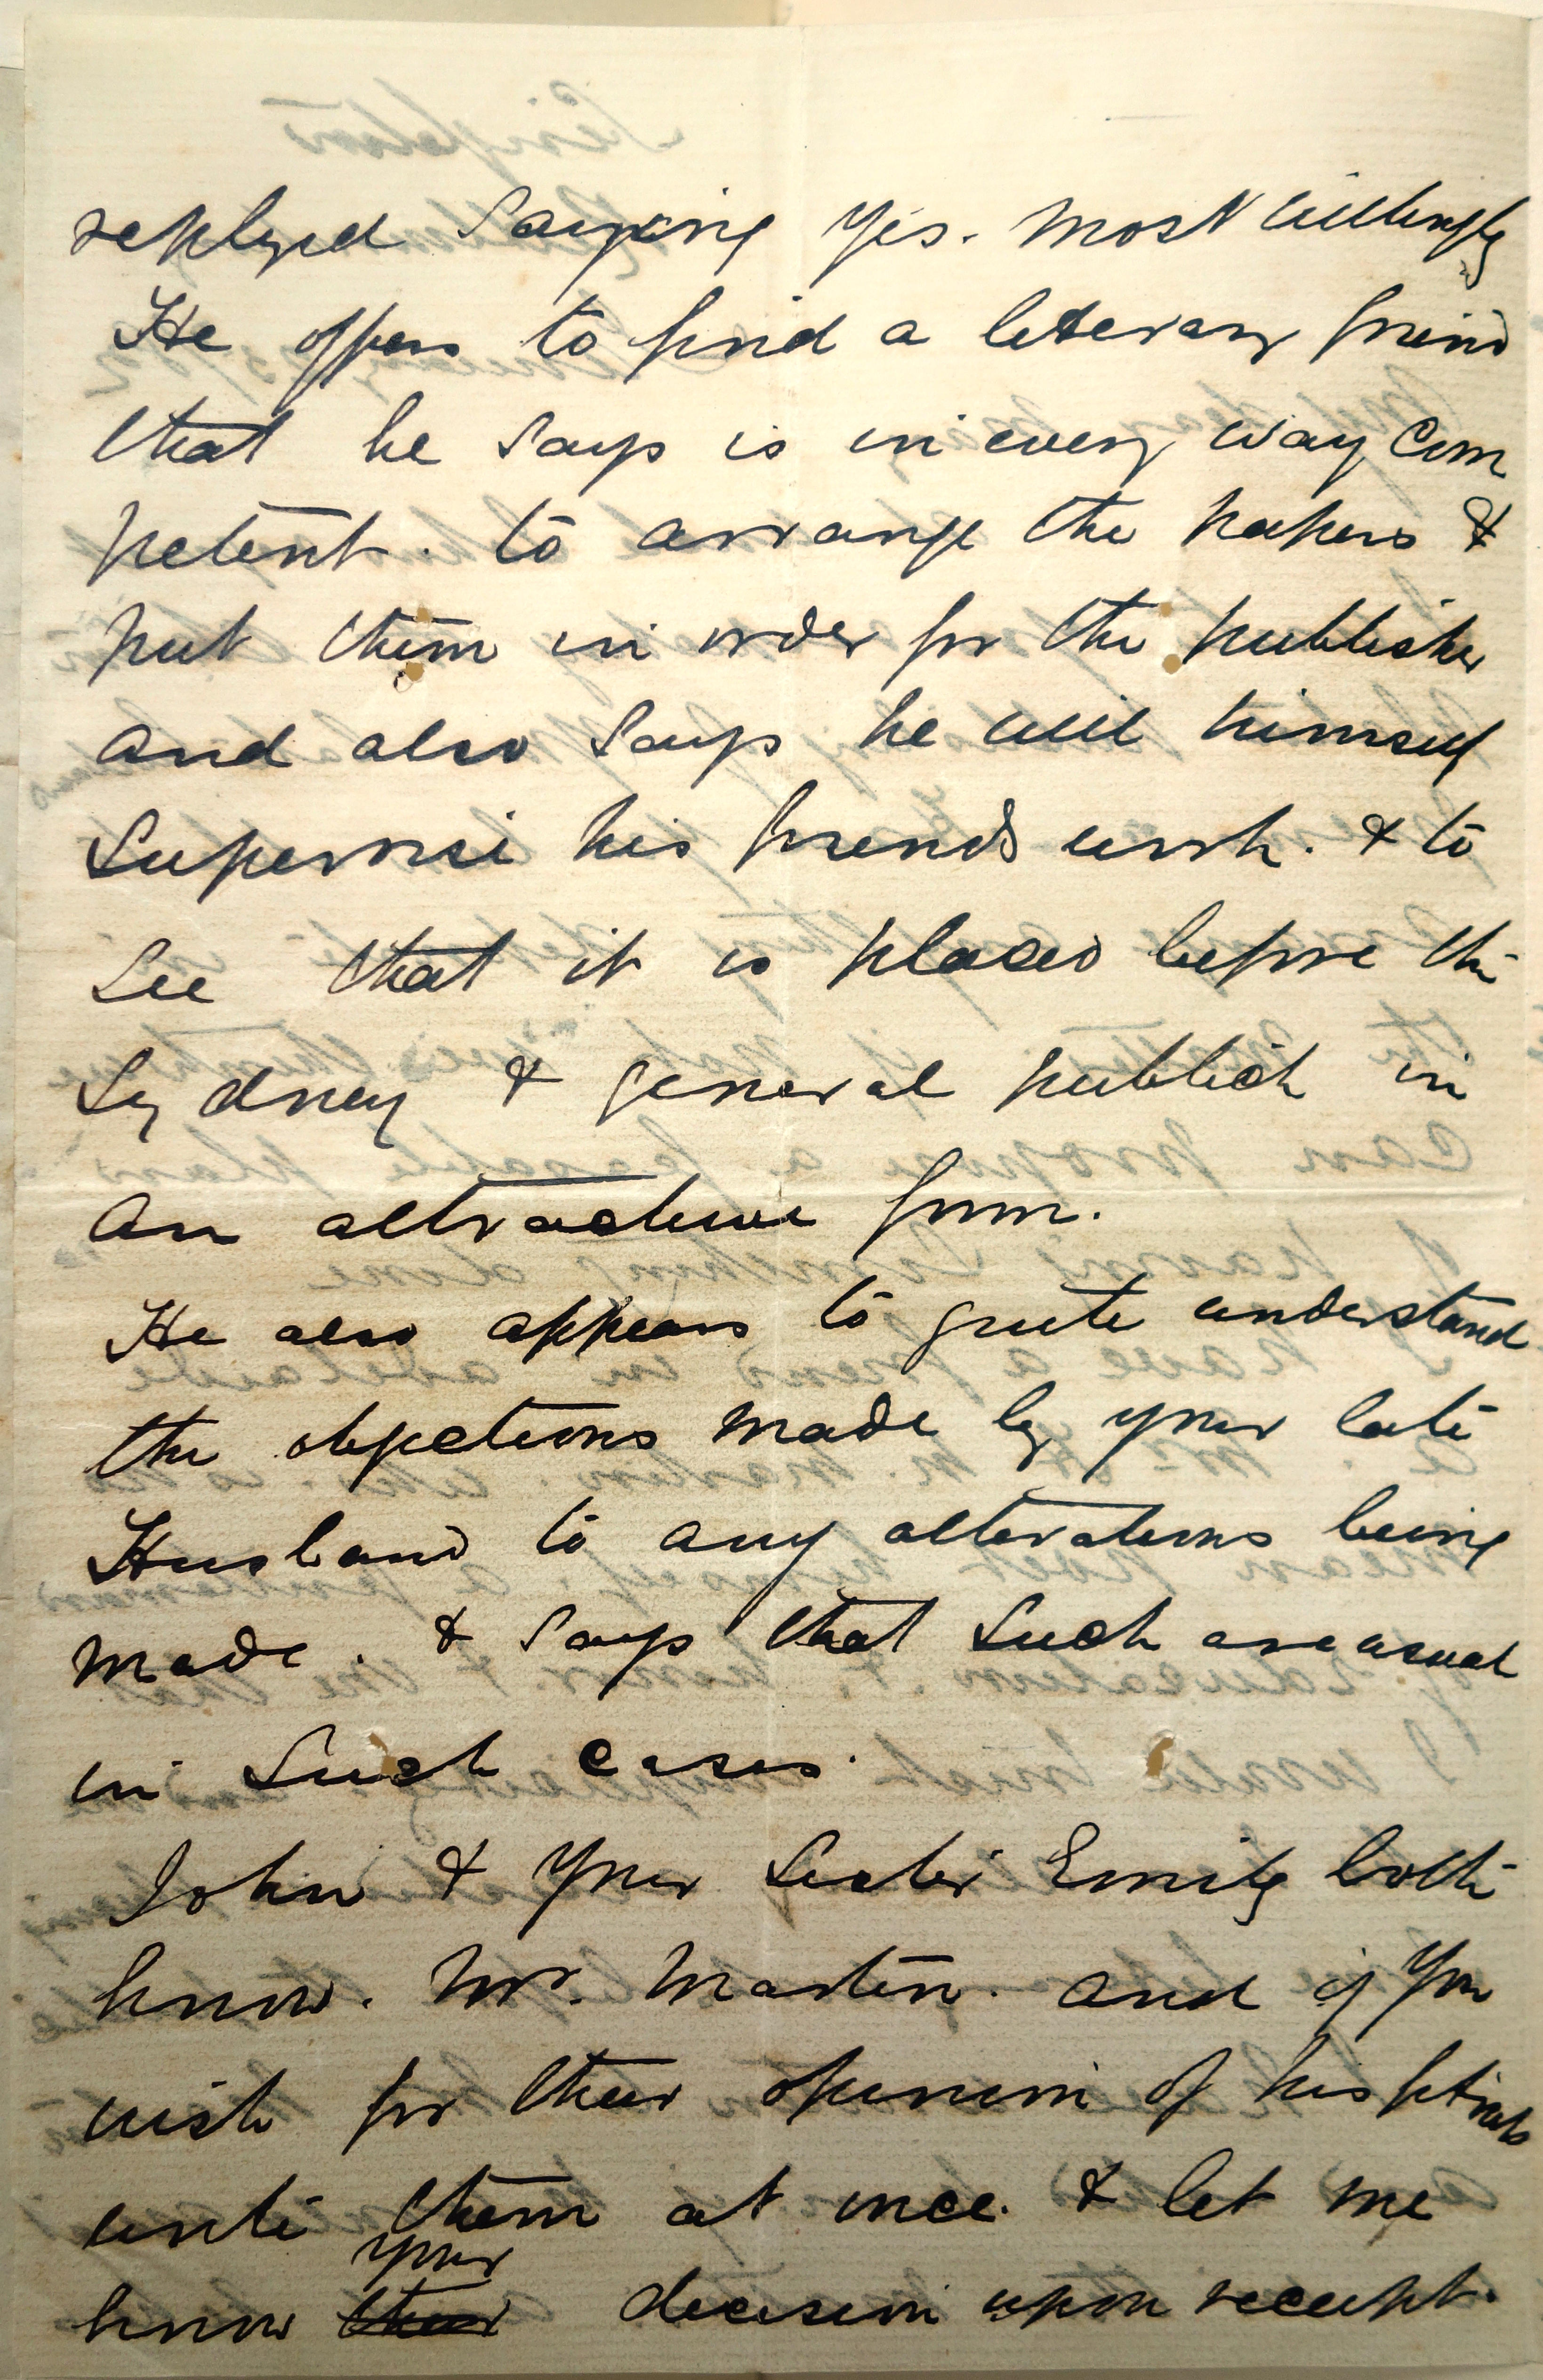 replyed Saying Yes. Most willingly
He offers to find a leterary friend
that he Says is in every way Com
petent. to arrange the papers &
put them in order for the publisher
and also Says he will himself
Supervise his friends work. & to
See that it is placed before the
Sydney & general publick in
an attractive form.
He also appears to quite understand
the objections made by your late
Husband to any alterations being
made. & Says that Such are usual
in Such cases.
John & Your Sister Emily both
know. Mr. Martin. and if You
wish for their opinion of his fitness
write them at once. & let me
know your decision upon receipt.